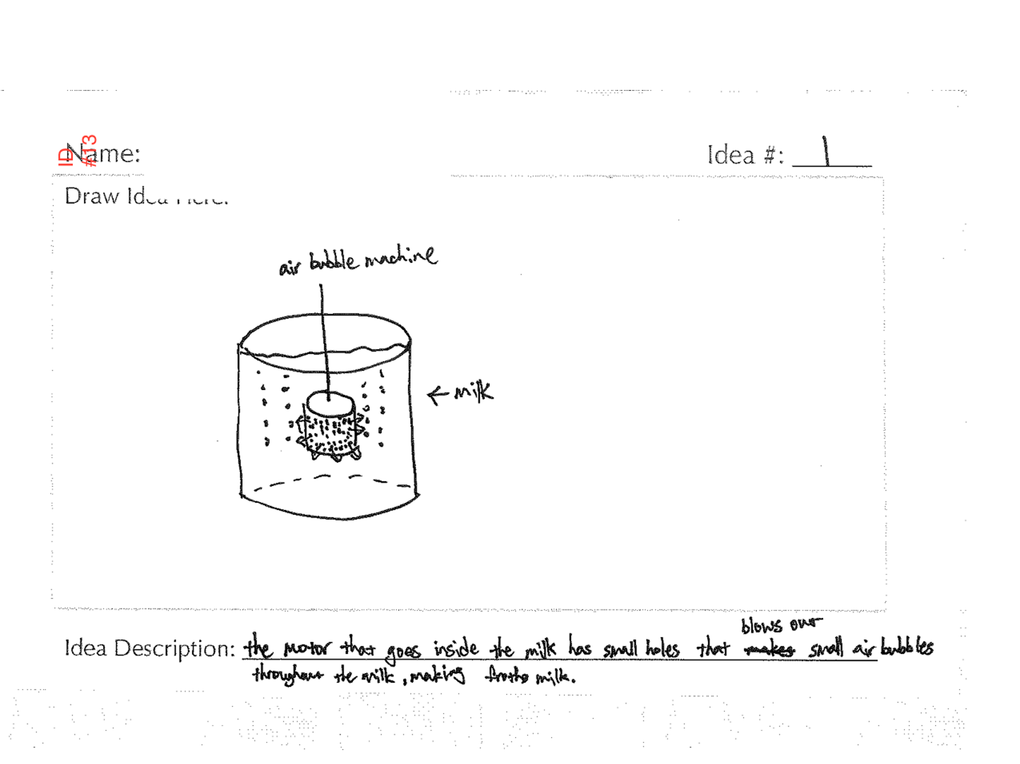 ID
#J3
Name:
Idea #: 1
Draw Idea Here:
air bubble machine
← milk
blows out
Idea Description: the motor that goes inside the milk has small holes that makes small air bubbles
throughout the milk, making froths milk.